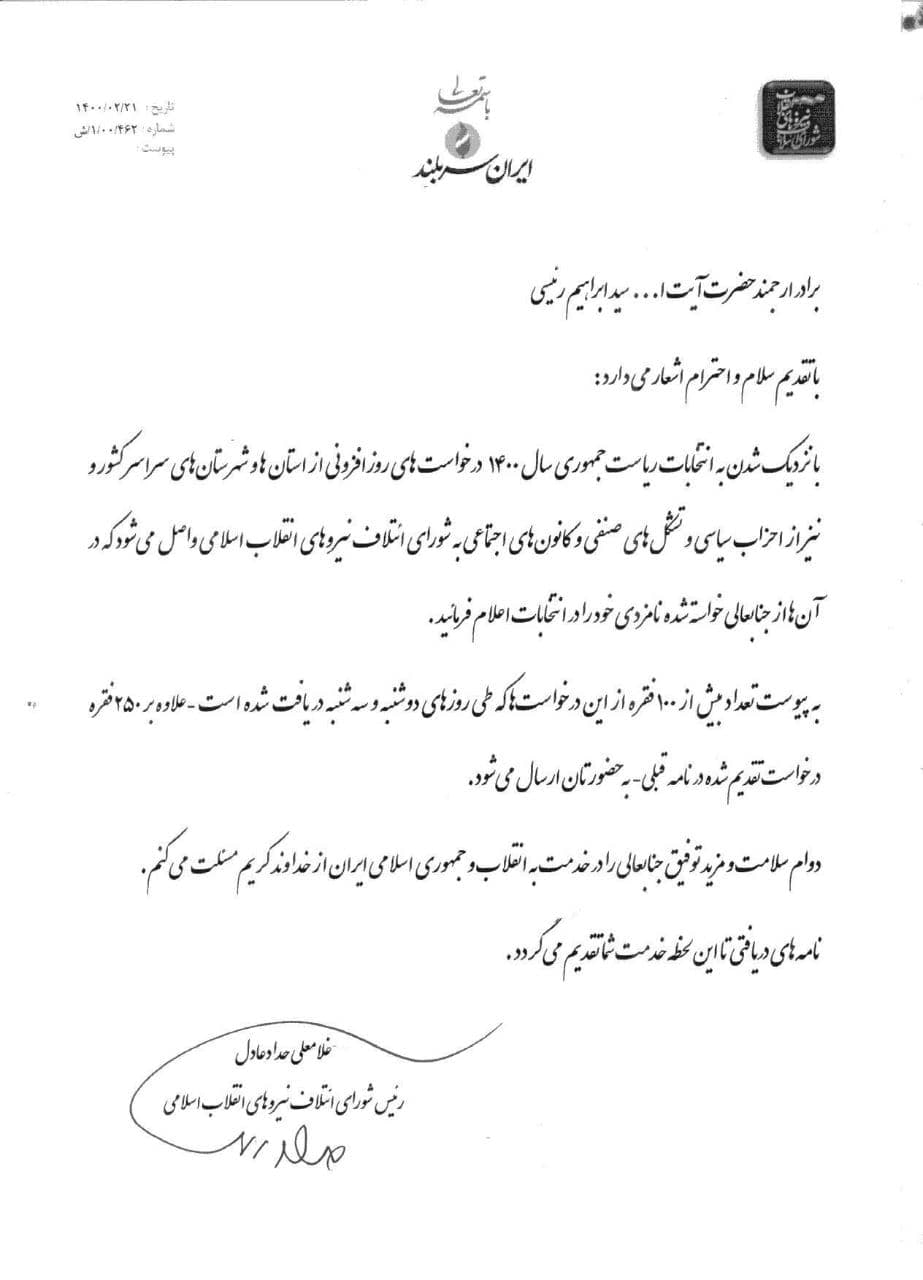 باسمه تعالی
ایران سربلند
شورای ائتلاف نیروهای انقلاب
تاریخ: ۱۴۰۰/۰۲/۲۱
شماره: ۱/۰۰/۴۶۲/ش
پیوست:
برادر ارجمند حضرت آیت ا... سید ابراهیم رئیسی
با تقدیم سلام و احترام اشعار می دارد:
با نزدیک شدن به انتخابات ریاست جمهوری سال ۱۴۰۰ درخواست های روزافزونی از استان ها و شهرستان های سراسر کشور و
نیز از احزاب سیاسی و تشکل های صنفی و کانون های اجتماعی به شورای ائتلاف نیروهای انقلاب اسلامی واصل می شود که در
آن ها از جنابعالی خواسته شده نامزدی خود را در انتخابات اعلام فرمائید.
به پیوست تعداد بیش از ۱۰۰ فقره از این درخواست ها که طی روزهای دوشنبه و سه شنبه دریافت شده است - علاوه بر ۲۵۰ فقره
درخواست تقدیم شده در نامه قبلی - به حضورتان ارسال می شود.
دوام سلامت و مزید توفیق جنابعالی را در خدمت به انقلاب و جمهوری اسلامی ایران از خداوند کریم مسئلت می کنم.
نامه های دریافتی تا این لحظه خدمت شما تقدیم می گردد.
غلامعلی حداد عادل
رئیس شورای ائتلاف نیروهای انقلاب اسلامی